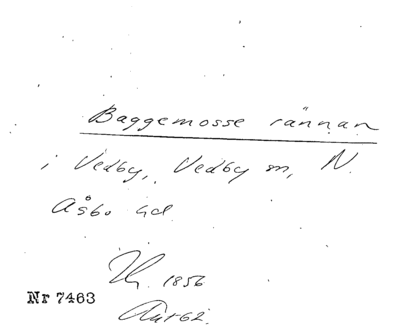 Baggemosse rännan
i Vedby, Vedby sn, N.
Åsbo hd
1856
Nr 7463